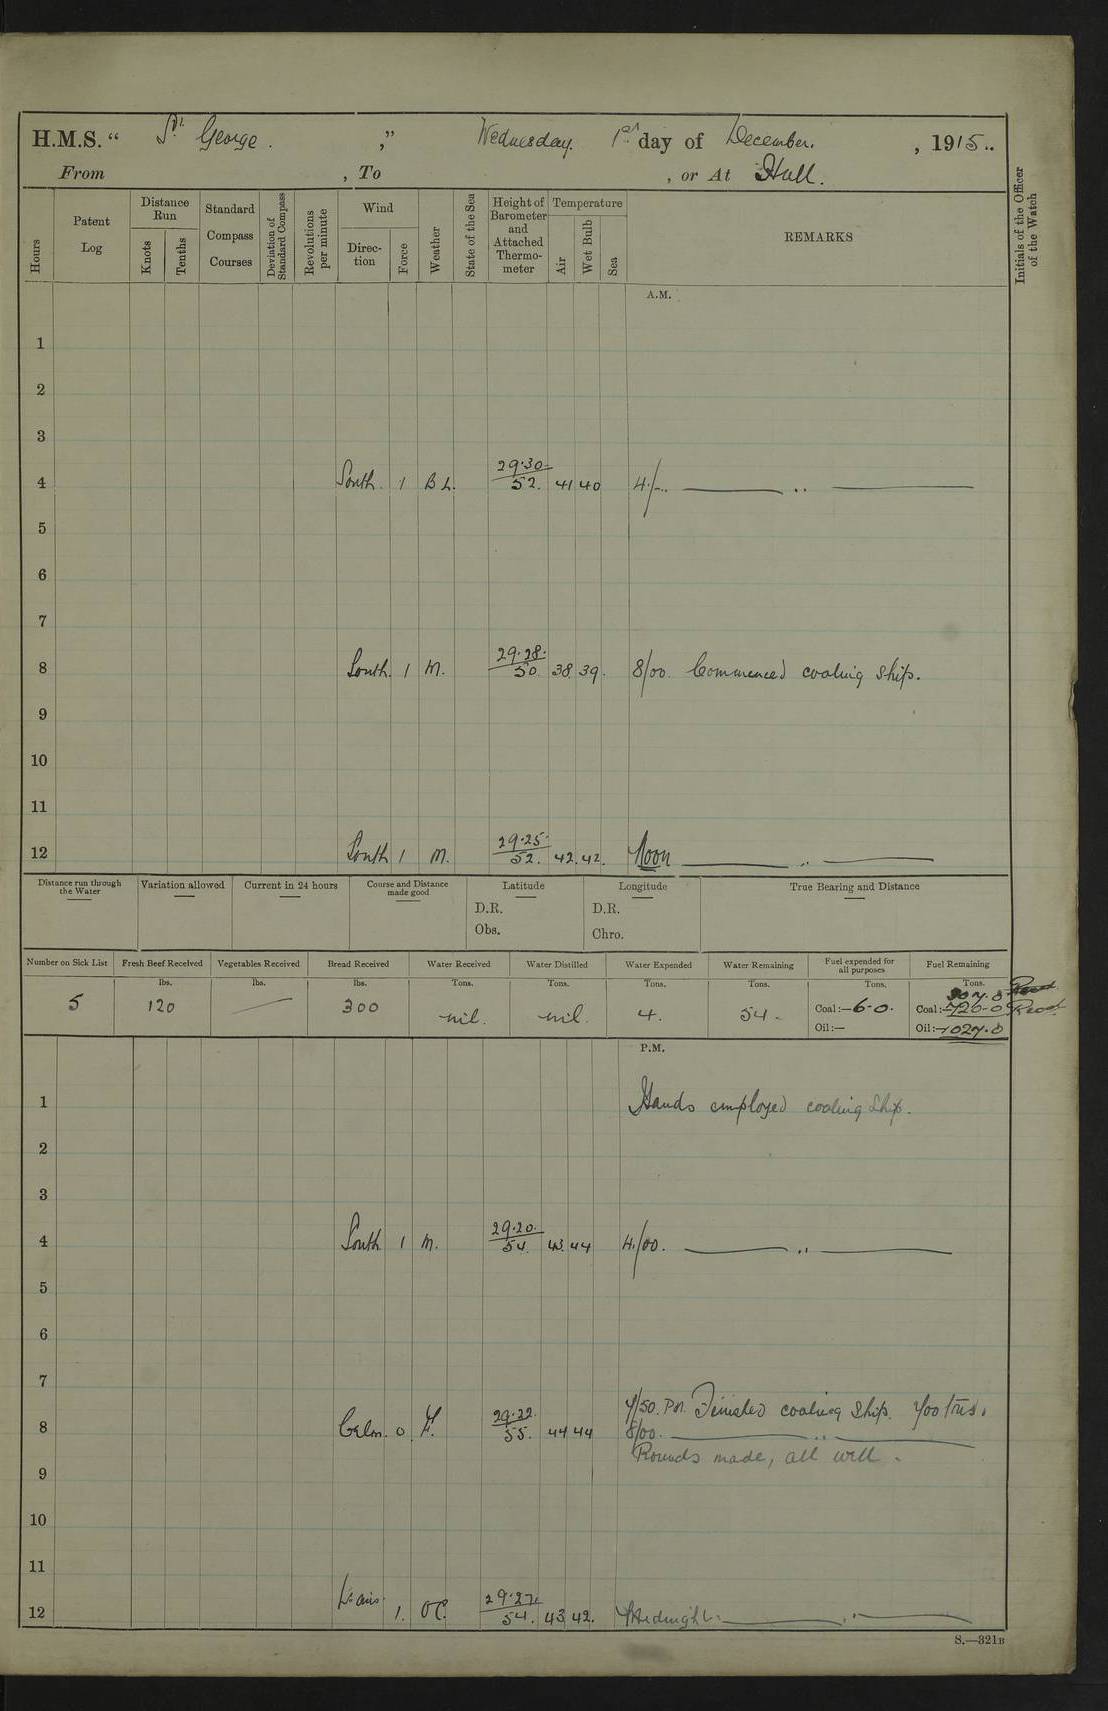 H.M.S. “ St. George. ” Wednesday. 1st day of December. , 1915..
From , To , or At Hull.
Hours
Patent Log
Distance Run
Knots
Tenths
Standard Compass Courses
Deviation of Standard Compass
Revolutions per minute
Wind
Direction
Force
Weather
State of the Sea
Height of Barometer and Attached Thermometer
Temperature
Air
Wet Bulb
Sea
REMARKS
Initials of the Officer of the Watch
A.M.
1
2
3
4 South. 1 29.30 52. 41 40 4/-..
5
6
7
8 South. 1 M. 29.28. 50. 38. 39. 8/00. Commenced coaling ship.
9
10
11
12 South 1 M. 29.25. 52. 42. 42. Noon
Distance run through the Water
Variation allowed
Current in 24 hours
Course and Distance made good
Latitude
D.R.
Obs.
Longitude
D.R.
Chro.
True Bearing and Distance
Number on Sick List
Fresh Beef Received
Vegetables Received
Bread Received
Water Received
Water Distilled
Water Expended
Water Remaining
Fuel expended for all purposes
Fuel Remaining
lbs. lbs. lbs. Tons. Tons. Tons. Tons. Tons. Tons.
5 120 — 300 nil. nil. 4. 54. Coal:—6-0. Coal:—
Oil:— Oil:—1027.0
P.M.
1 Hands employed coaling ship.
2
3
4 South 1 M. 29.20. 54. 43. 44 4./00.
5
6
7
7/50. P.M. Finished coaling ship. 400 tns.
8 Calm. 0 F. 29.22. 55. 44 44 8/00.
Rounds made, all well.
9
10
11
12 Lt airs. 1. OC. 54. 43 42. Midnight.
S.—321B